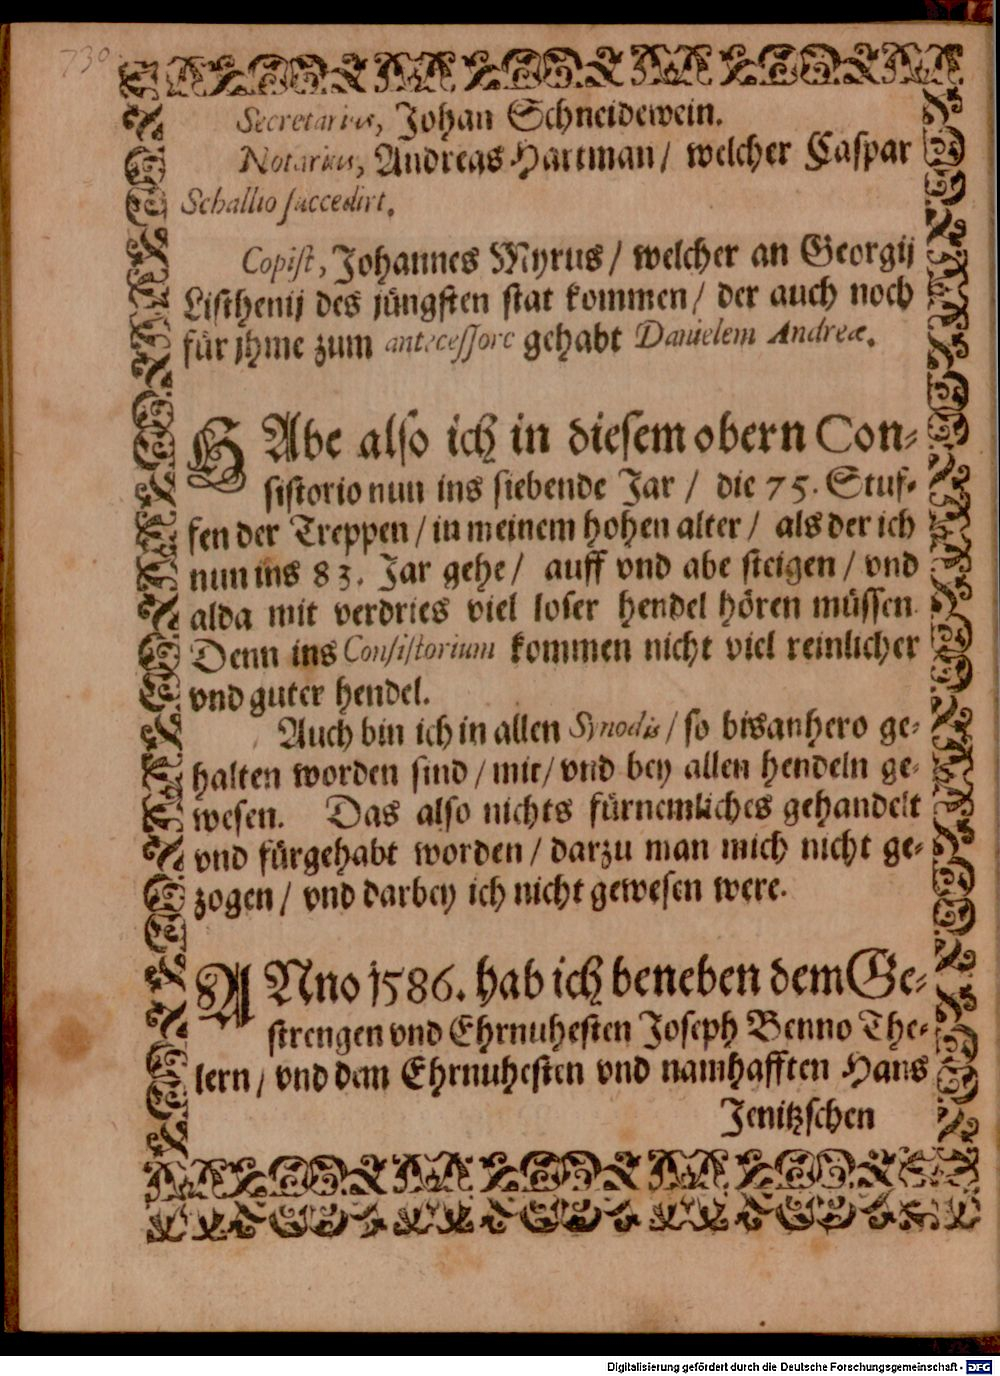 730
Secretarius, Johan Schneidewein.
Notarius, Andreas Hartman / welcher Caspar
Schallio succedirt.
Copist, Johannes Myrus / welcher an Georgij
Listhenij des jüngsten stat kommen / der auch noch
für jhme zum antecessore gehabt Danielem Andreæ.
HAbe also ich in diesem obern Con-
sistorio nun ins siebende Jar / die 75. Stuf-
fen der Treppen / in meinem hohen alter / als der ich
nun ins 83. Jar gehe / auff vnd abe steigen / vnd
alda mit verdries viel loser hendel hören müssen.
Denn ins Consistorium kommen nicht viel reinlicher
vnd guter hendel.
Auch bin ich in allen Synodis / so bisanhero ge-
halten worden sind / mit / vnd bey allen hendeln ge-
wesen. Das also nichts fürnemliches gehandelt
vnd fürgehabt worden / darzu man mich nicht ge-
zogen / vnd darbey ich nicht gewesen were.
ANno 1586. hab ich beneben dem Ge-
strengen vnd Ehrnuhesten Joseph Benno The-
lern / vnd dem Ehrnuhesten vnd namhafften Hans
Jenitzschen
Digitalisierung gefördert durch die Deutsche Forschungsgemeinschaft - DFG